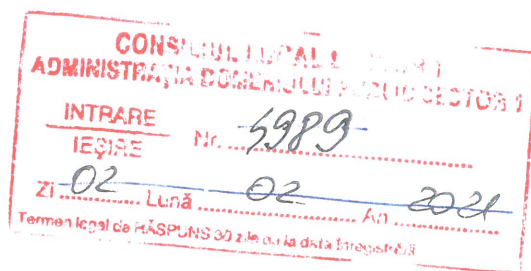 CONSILIUL LOCAL
ADMINISTRAȚIA DOMENIULUI PUBLIC SECTOR 1
INTRARE
IEȘIRE
Nr. 5989
Zi 02 Lună 02 An 2021
Termen legal de RĂSPUNS 30 zile de la data înregistrării